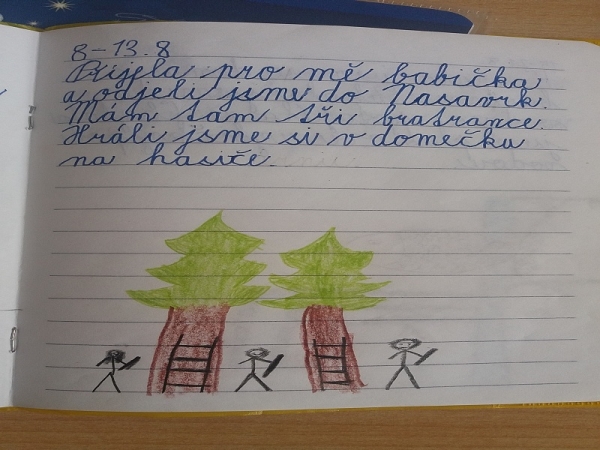 8-13.8
Přijela pro mě babička
a odjeli jsme do Nasavrk.
Mám tam tři bratrance.
Hráli jsme si v domečku
na hasiče.